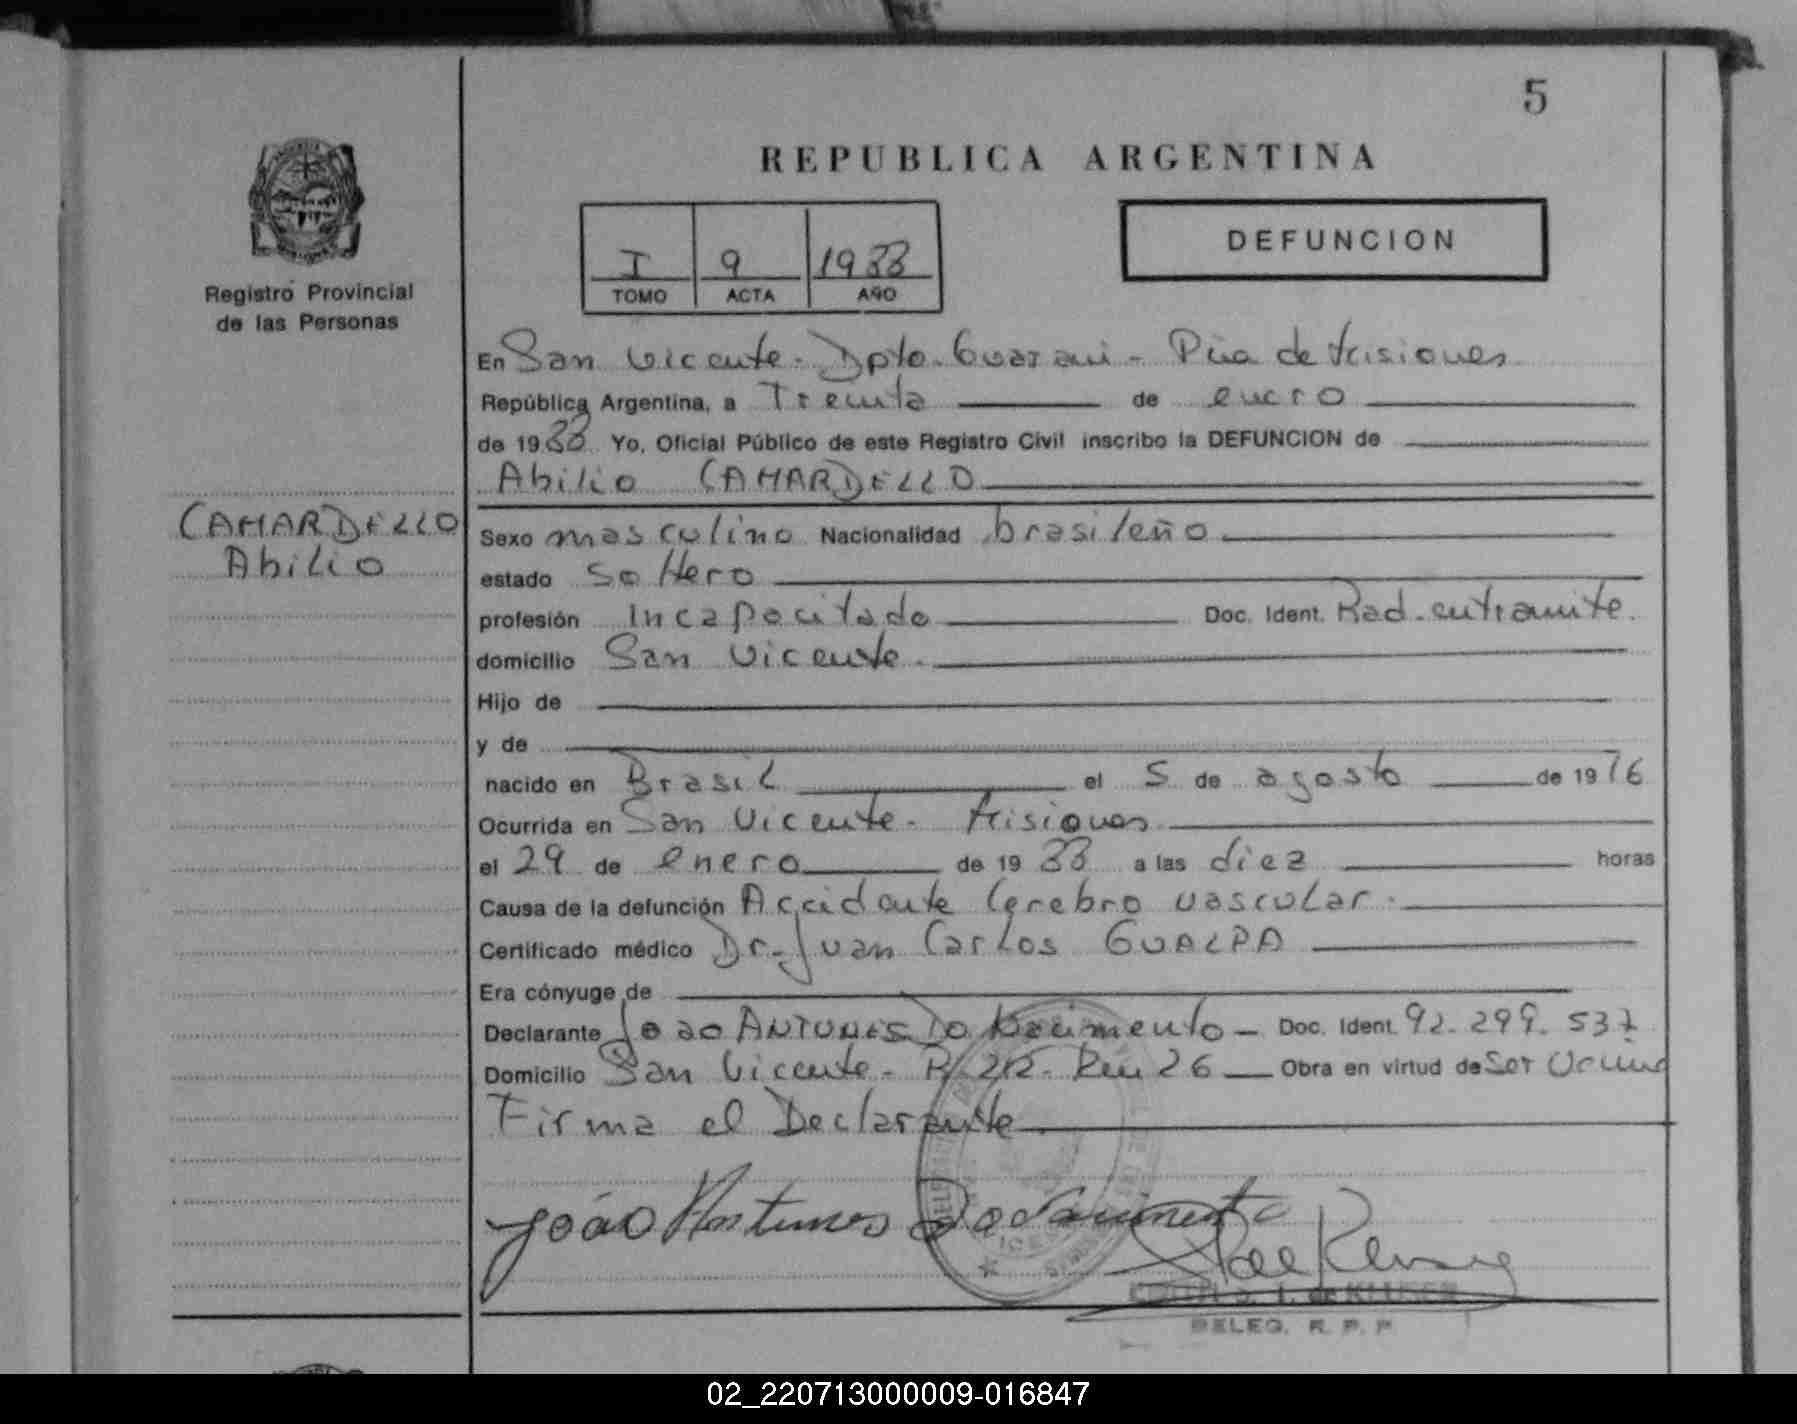 5
REPUBLICA ARGENTINA
I 9 1988
TOMO ACTA AÑO
DEFUNCION
Registro Provincial
de las Personas
En San Vicente - Dpto. Guarani - Pcia de Misiones
República Argentina, a Treinta de enero
de 1988 Yo, Oficial Público de este Registro Civil inscribo la DEFUNCION de
Abilio CAMARDELLO
CAMARDELLO
Abilio
Sexo masculino Nacionalidad brasileño
estado soltero
profesión Incapacitado Doc. Ident. Rad. en tramite.
domicilio San Vicente.
Hijo de
y de
nacido en Brasil el 5 de agosto de 1916
Ocurrida en San Vicente - Misiones
el 29 de enero de 1988 a las diez horas
Causa de la defunción Accidente Cerebro vascular.
Certificado médico Dr. Juan Carlos GUALPA
Era cónyuge de
Declarante Joao ANTUNES Do Nacimento - Doc. Ident. 92.299.537
Domicilio San Vicente - R. 212 - Km 26 Obra en virtud de Ser Vecino
Firma el Declarante
João Antunes Do
DELEG. R. P. P.
02_220713000009-016847